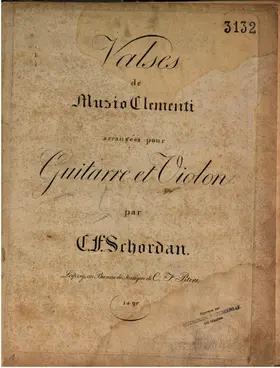 3132
Valses
de
Muzio Clementi
arrangées pour
Guitarre et Violon
par
C.F. Schordan.
Leipzig, au Bureau de Musique de C. F.